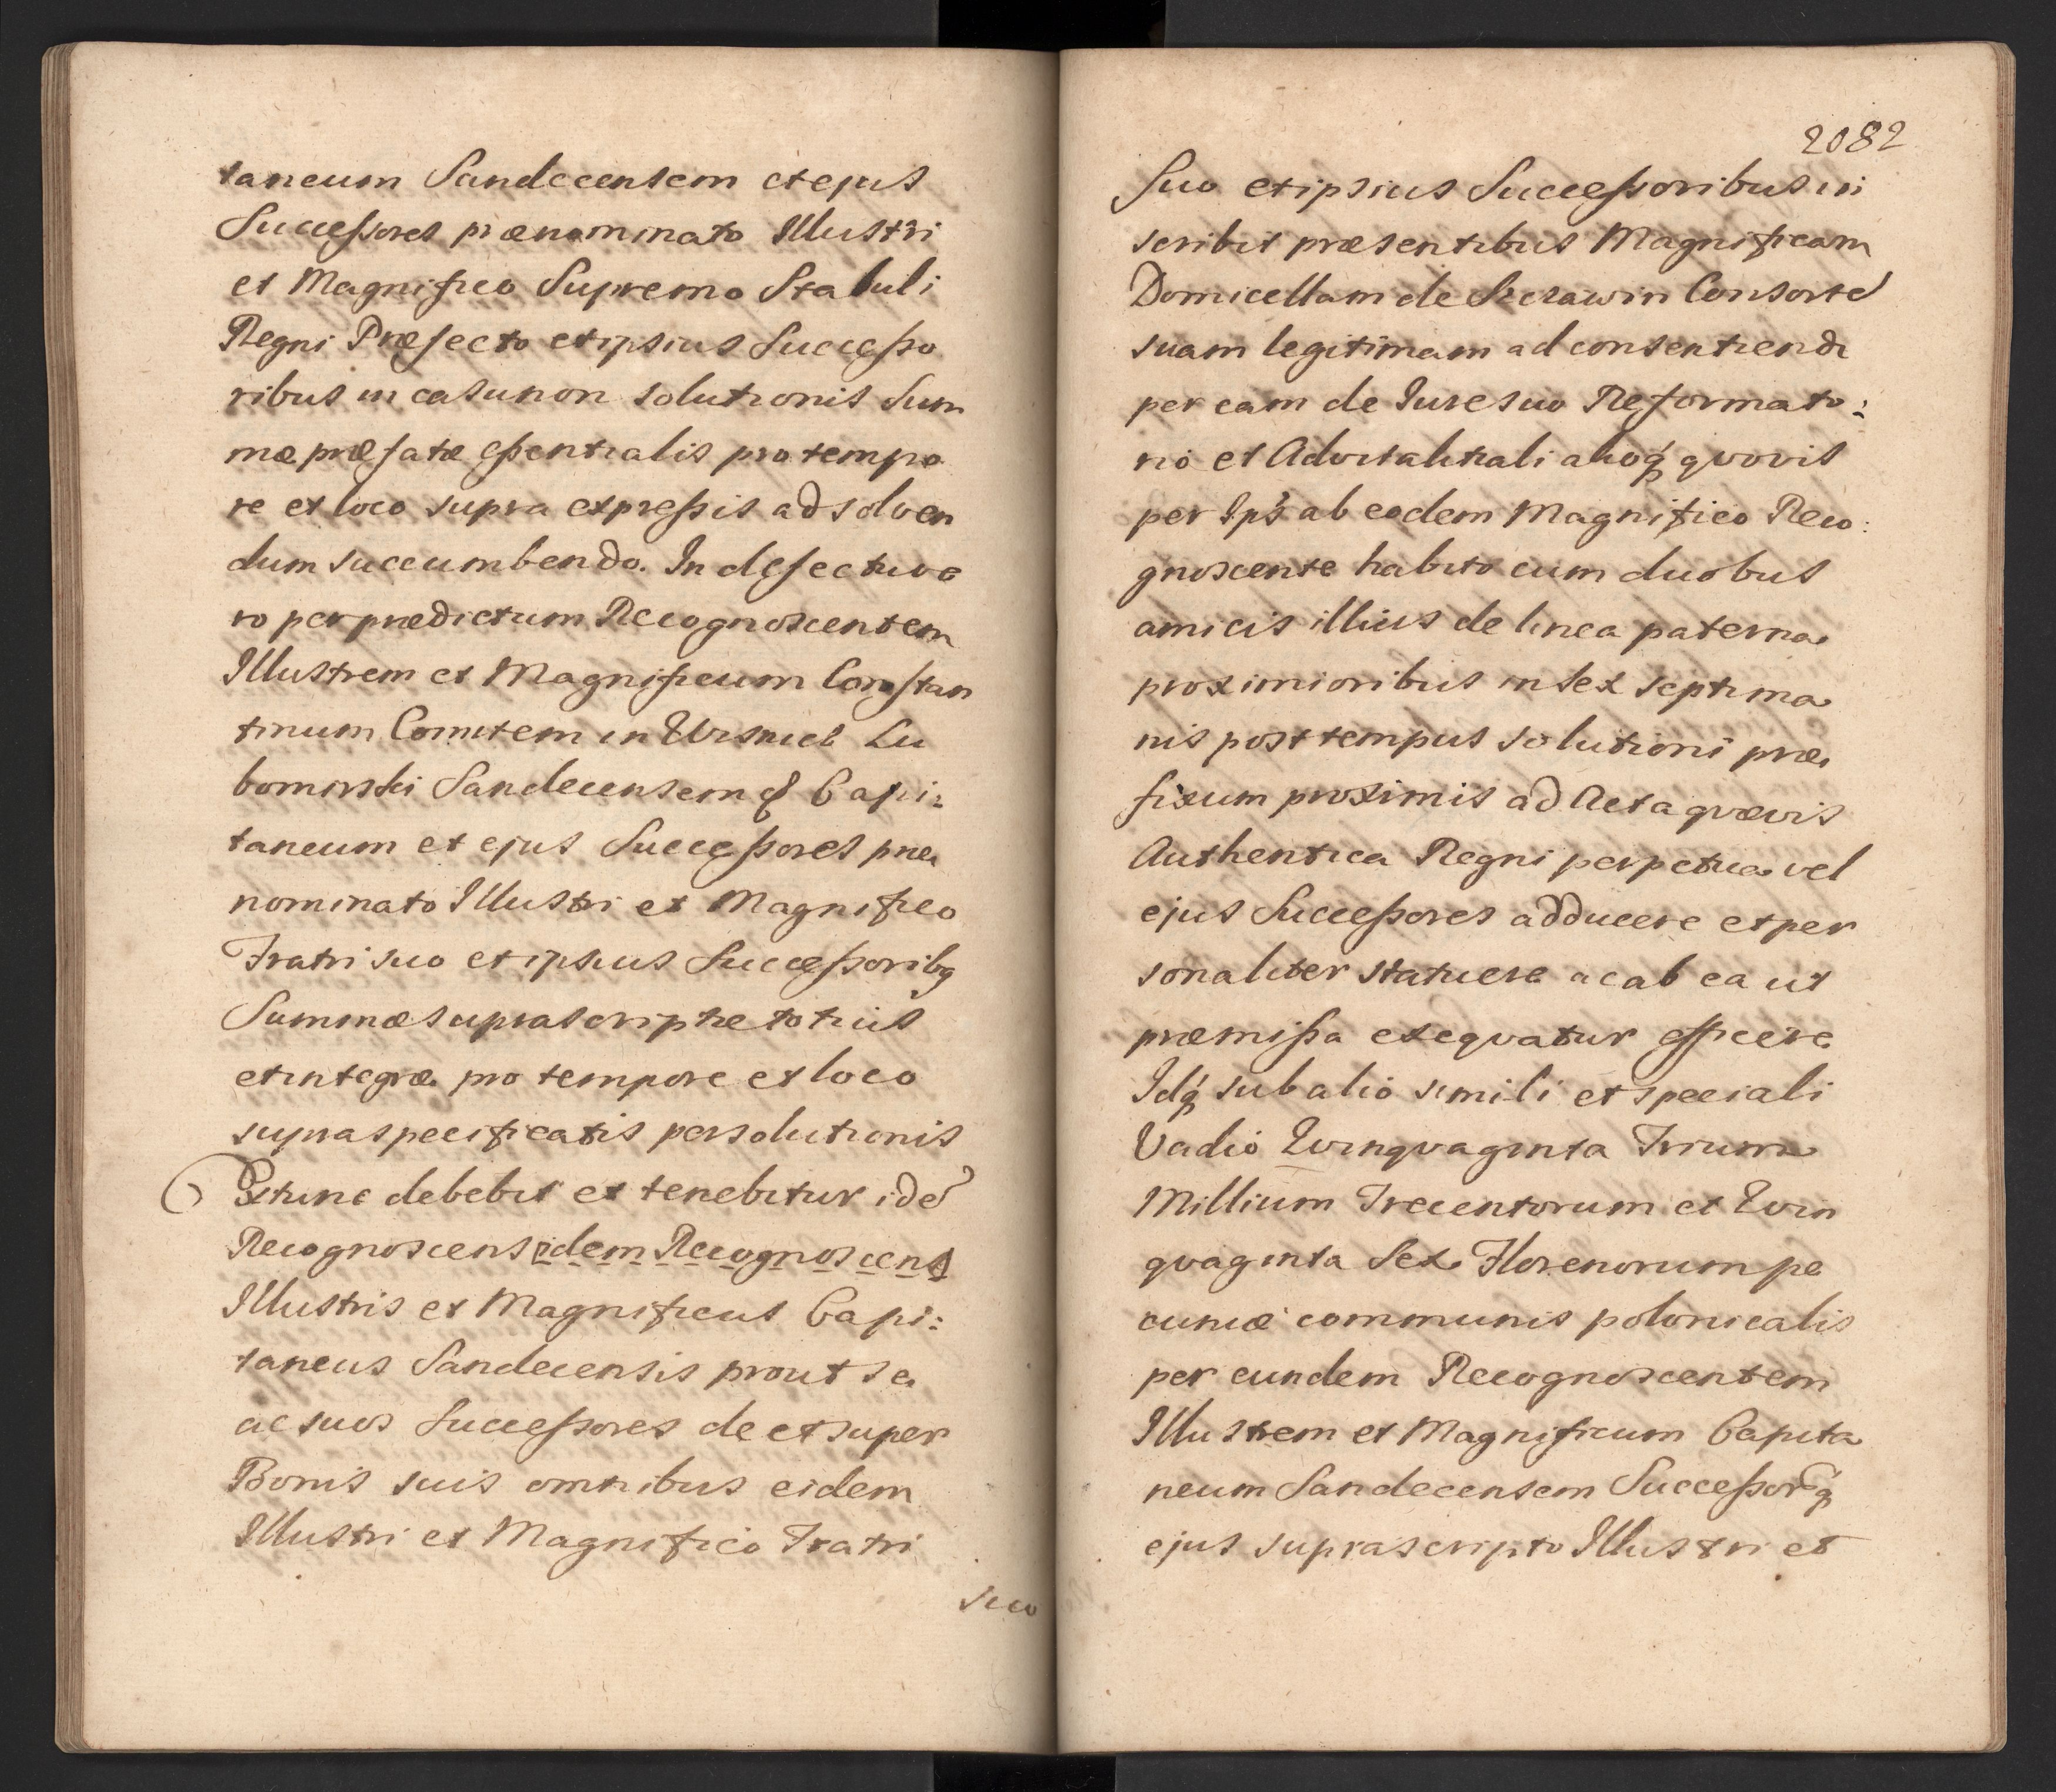 taneum Sandecensem et ejus
Successores prænominato Illustri
et Magnifico Supremo Stabuli
Regni Præfecto et ipsius Successo
ribus in casu non solutionis Sum
mæ præfatæ essentialis pro tempo
re et loco supra expressis ad solven
dum succumbendo. In defectu ve
ro per prædictum Recognoscentem
Illustrem et Magnificum Constan
tinum Comitem in Wisnicz Lu
bomirski Sandecensemq Capi:
taneum et ejus Successores præ
nominato Illustri et Magnifico
Fratri suo et ipsius Successoribq
Summæ suprascriptæ totius
et integræ pro tempore et loco
supraspecificatis persolutionis
Extunc debebit et tenebitur ide
Recognoscens idem Recognoscens
Illustris et Magnificus Capi:
taneus Sandecensis prout se
ac suos Successores de et super
Bonis suis omnibus eidem
Illustri et Magnifico Fratri
suo
2082
suo et ipsius Successoribus in
scribit præsentibus Magnificam
Domicellam de Consorte
suam legitimam ad consentiendu
per eam de Iure suo Reformato:
rio et Advitalitiali alioq quovis
per Ips ab eodem Magnifico Reco:
gnoscente habito cum duobus
amicis illius de linea paterna
proximioribus in sex septima
nis post tempus solutioni præ
fixum proximis ad Acta quævis
Authentica Regni perpetua vel
ejus Successores adducere et per
sonaliter statuere ac ab ea ut
præmissa exequatur efficere
Idq sub alio simili et speciali
Vadio Quinquaginta Trium
Millium Trecentorum et Quin
quaginta Sex Florenorum pe
cuniæ communis polonicalis
per eundem Recognoscentem
Illustrem et Magnificum Capita
neum Sandecensem Successorq
ejus suprascripto Illustri et